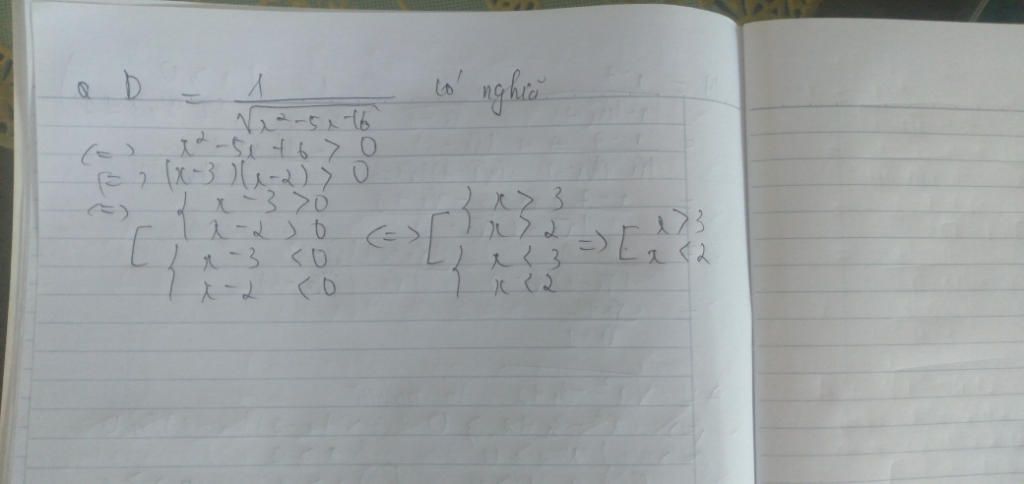 a D = 1/√(x² - 5x + 6) có nghĩa
<=> x² - 5x + 6 > 0
<=> (x-3)(x-2) > 0
<=> [ { x - 3 > 0 { x > 3
x - 2 > 0 <=> [ x > 2 => [ x > 3
{ x - 3 < 0 { x < 3 x < 2
x - 2 < 0 x < 2